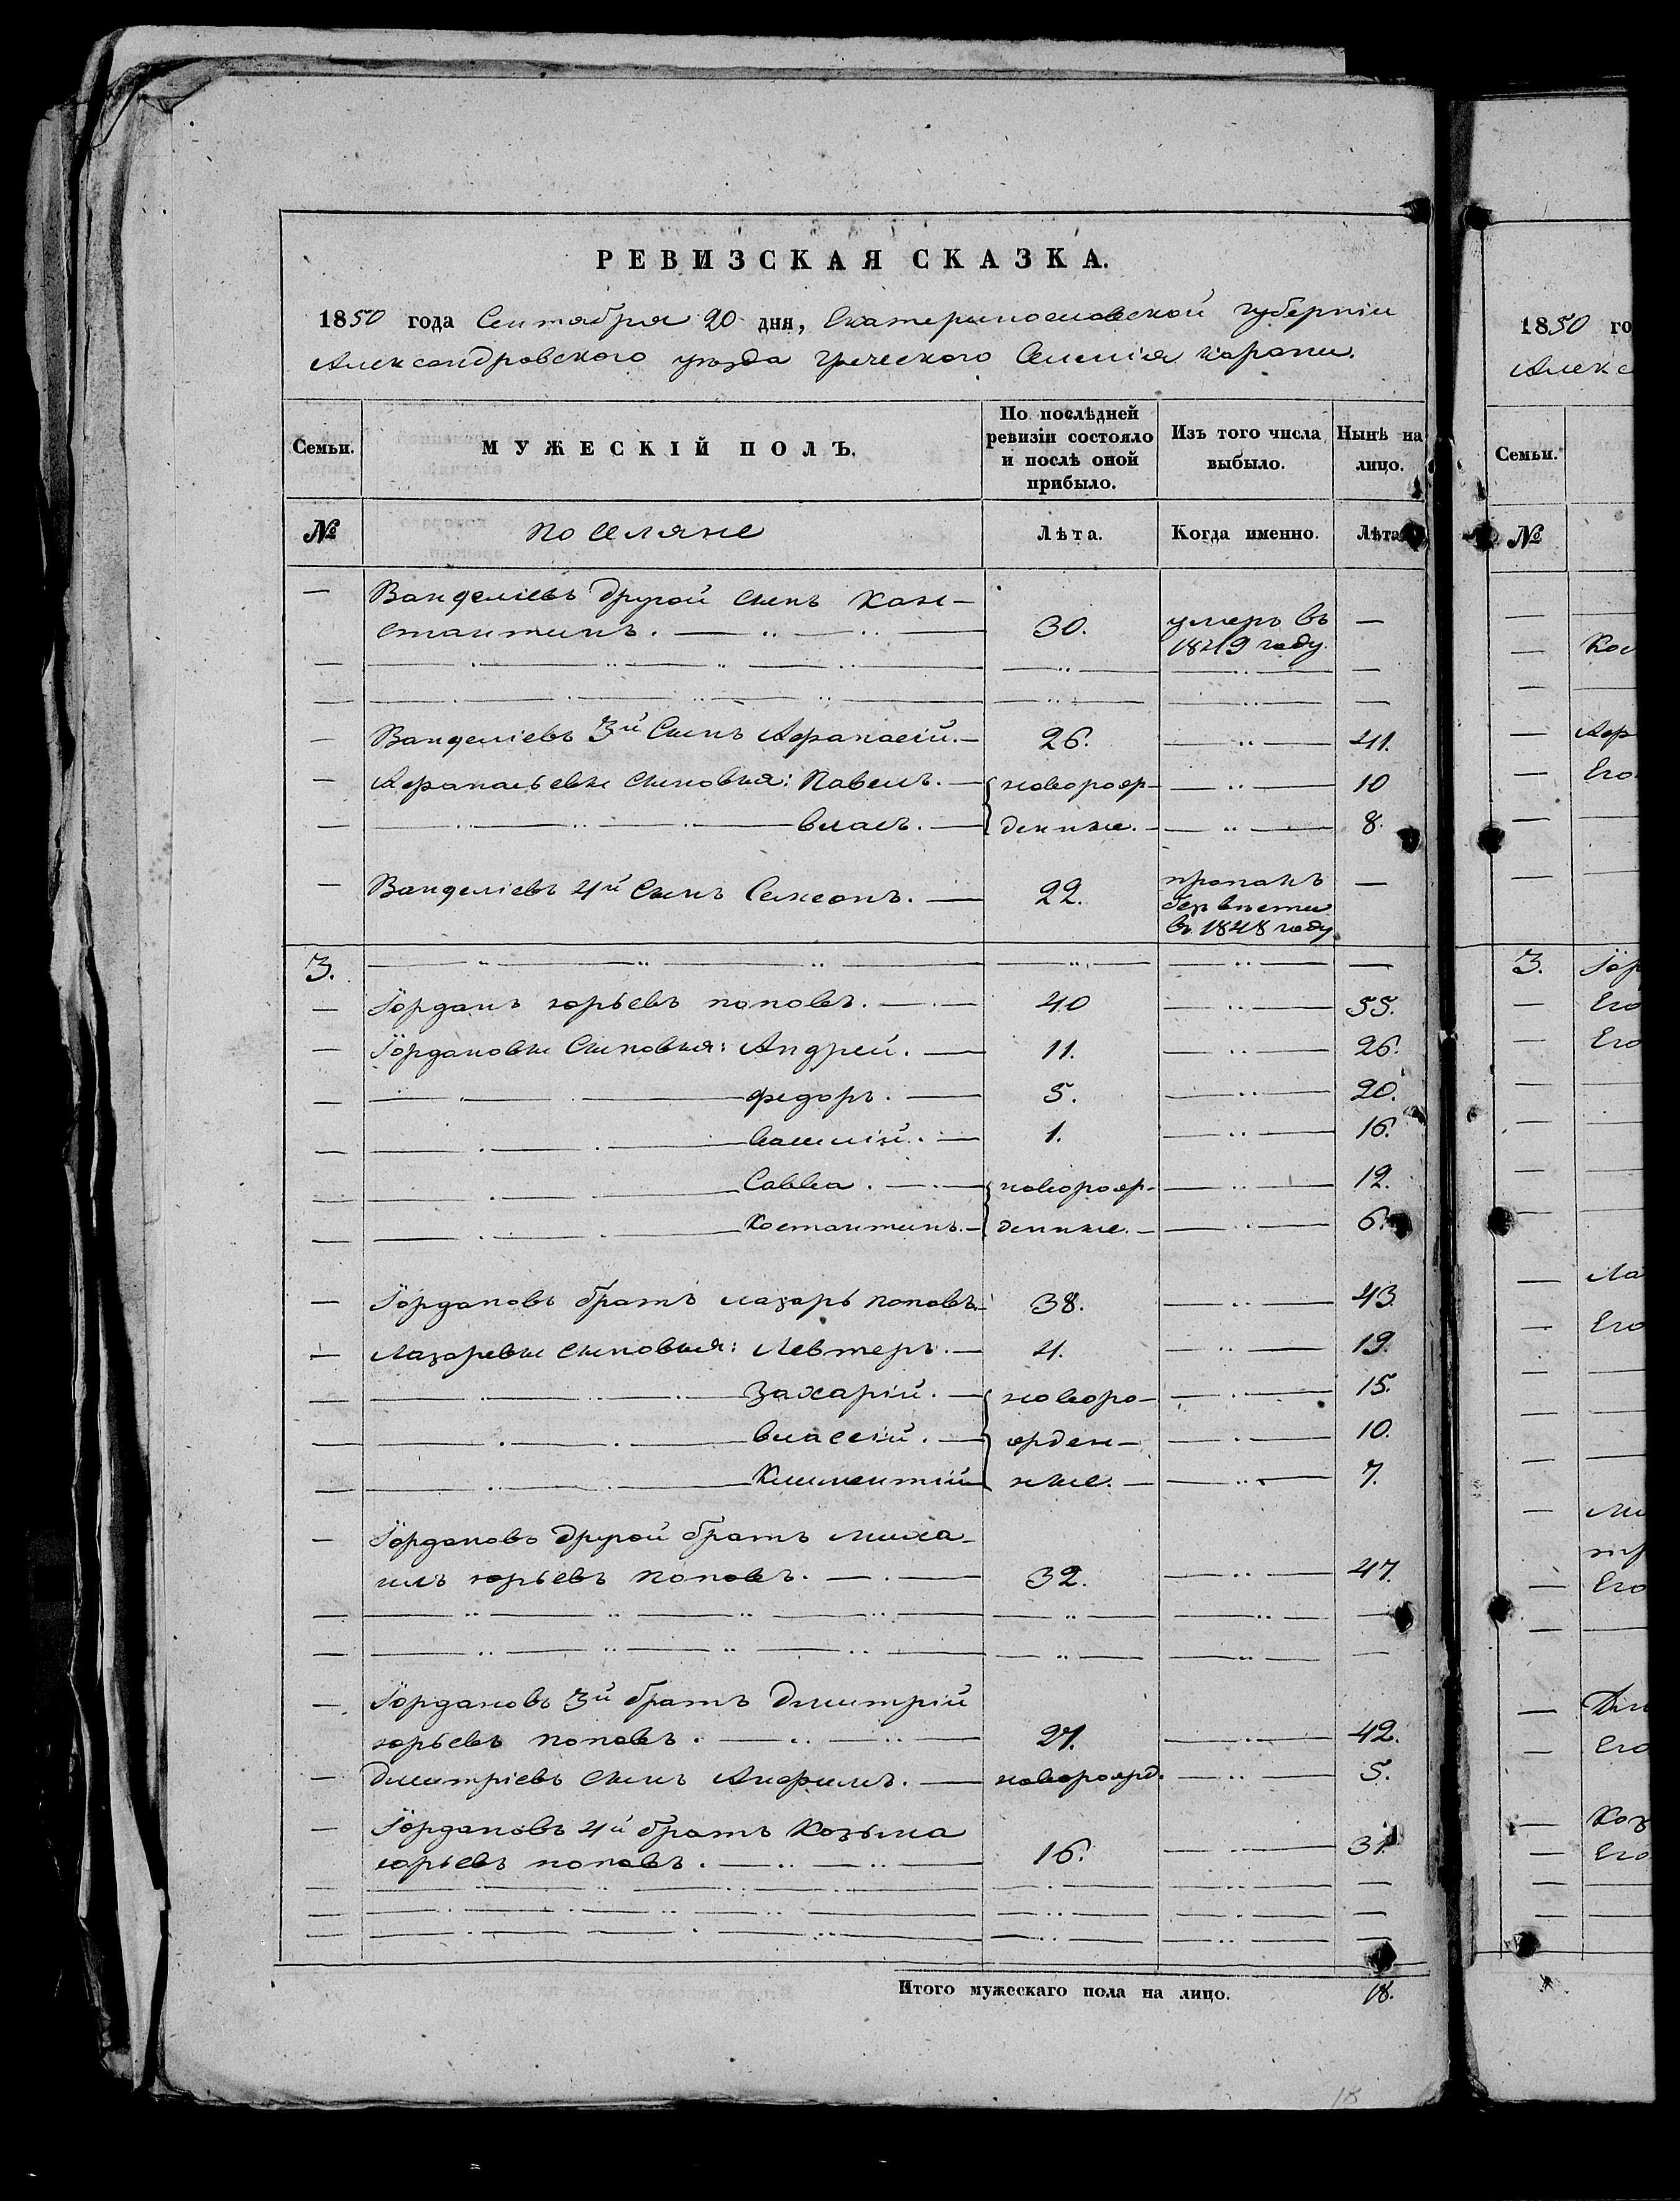 РЕВИЗСКАЯ СКАЗКА.
1850 года Сентября 20 дня, Екатеринославской губерніи
Александровского уезда греческого Селенія карани.
Семьи. МУЖЕСКІЙ ПОЛЪ. По послѣдней ревизіи состояло и послѣ оной прибыло. Изъ того числа выбыло. Нынѣ на лицо.
№ поселяне Лѣта. Когда именно. Лѣта
— Вангеліевъ другой сынъ Кон-
стантинъ. 30. умеръ въ 1849 году. —
— Вангеліевъ 3й Сынъ Афанасій. — 26. — 41.
— Афанасьевы сыновья: Павелъ. — новорож- — 10
— власъ. — денные. — 8.
— Вангеліевъ 4й Сынъ Самсонъ. — 22. пропалъ без вести въ 1848 году —
3.
— Іорданъ юрьевъ поповъ. — 40 — 55.
— Іордановы Сыновья: Андрей. — 11. — 26.
— федоръ. — 5. — 20.
— василій. — 1. — 16.
— Савва. — новорож- — 12.
— Костантинъ. — денные. — 6.
— Іордановъ братъ лазарь поповъ. — 38. — 43.
— Лазаревы сыновья: Левтеръ. — 4. — 19.
— Захарій. — новоро- — 15.
— власій. — жден- — 10.
— Климентій — ные. — 7.
— Іордановъ другой братъ миха-
илъ юрьевъ поповъ. — 32. — 47.
— Іордановъ 3й братъ Дмитрій
юрьевъ поповъ. — 27. — 42.
— Дмитріевъ сынъ Анфимъ. — новорожд. — 5.
— Іордановъ 4й братъ Козьма
юрьевъ поповъ. — 16. — 31.
Итого мужескаго пола на лицо. 18.
18
1850 го
Алекс
Семьи.
№
Кос
Аф
Его
3. Іор
Его
Его
Ла
Его
Ми
Его
Дм
Его
Коз
Его